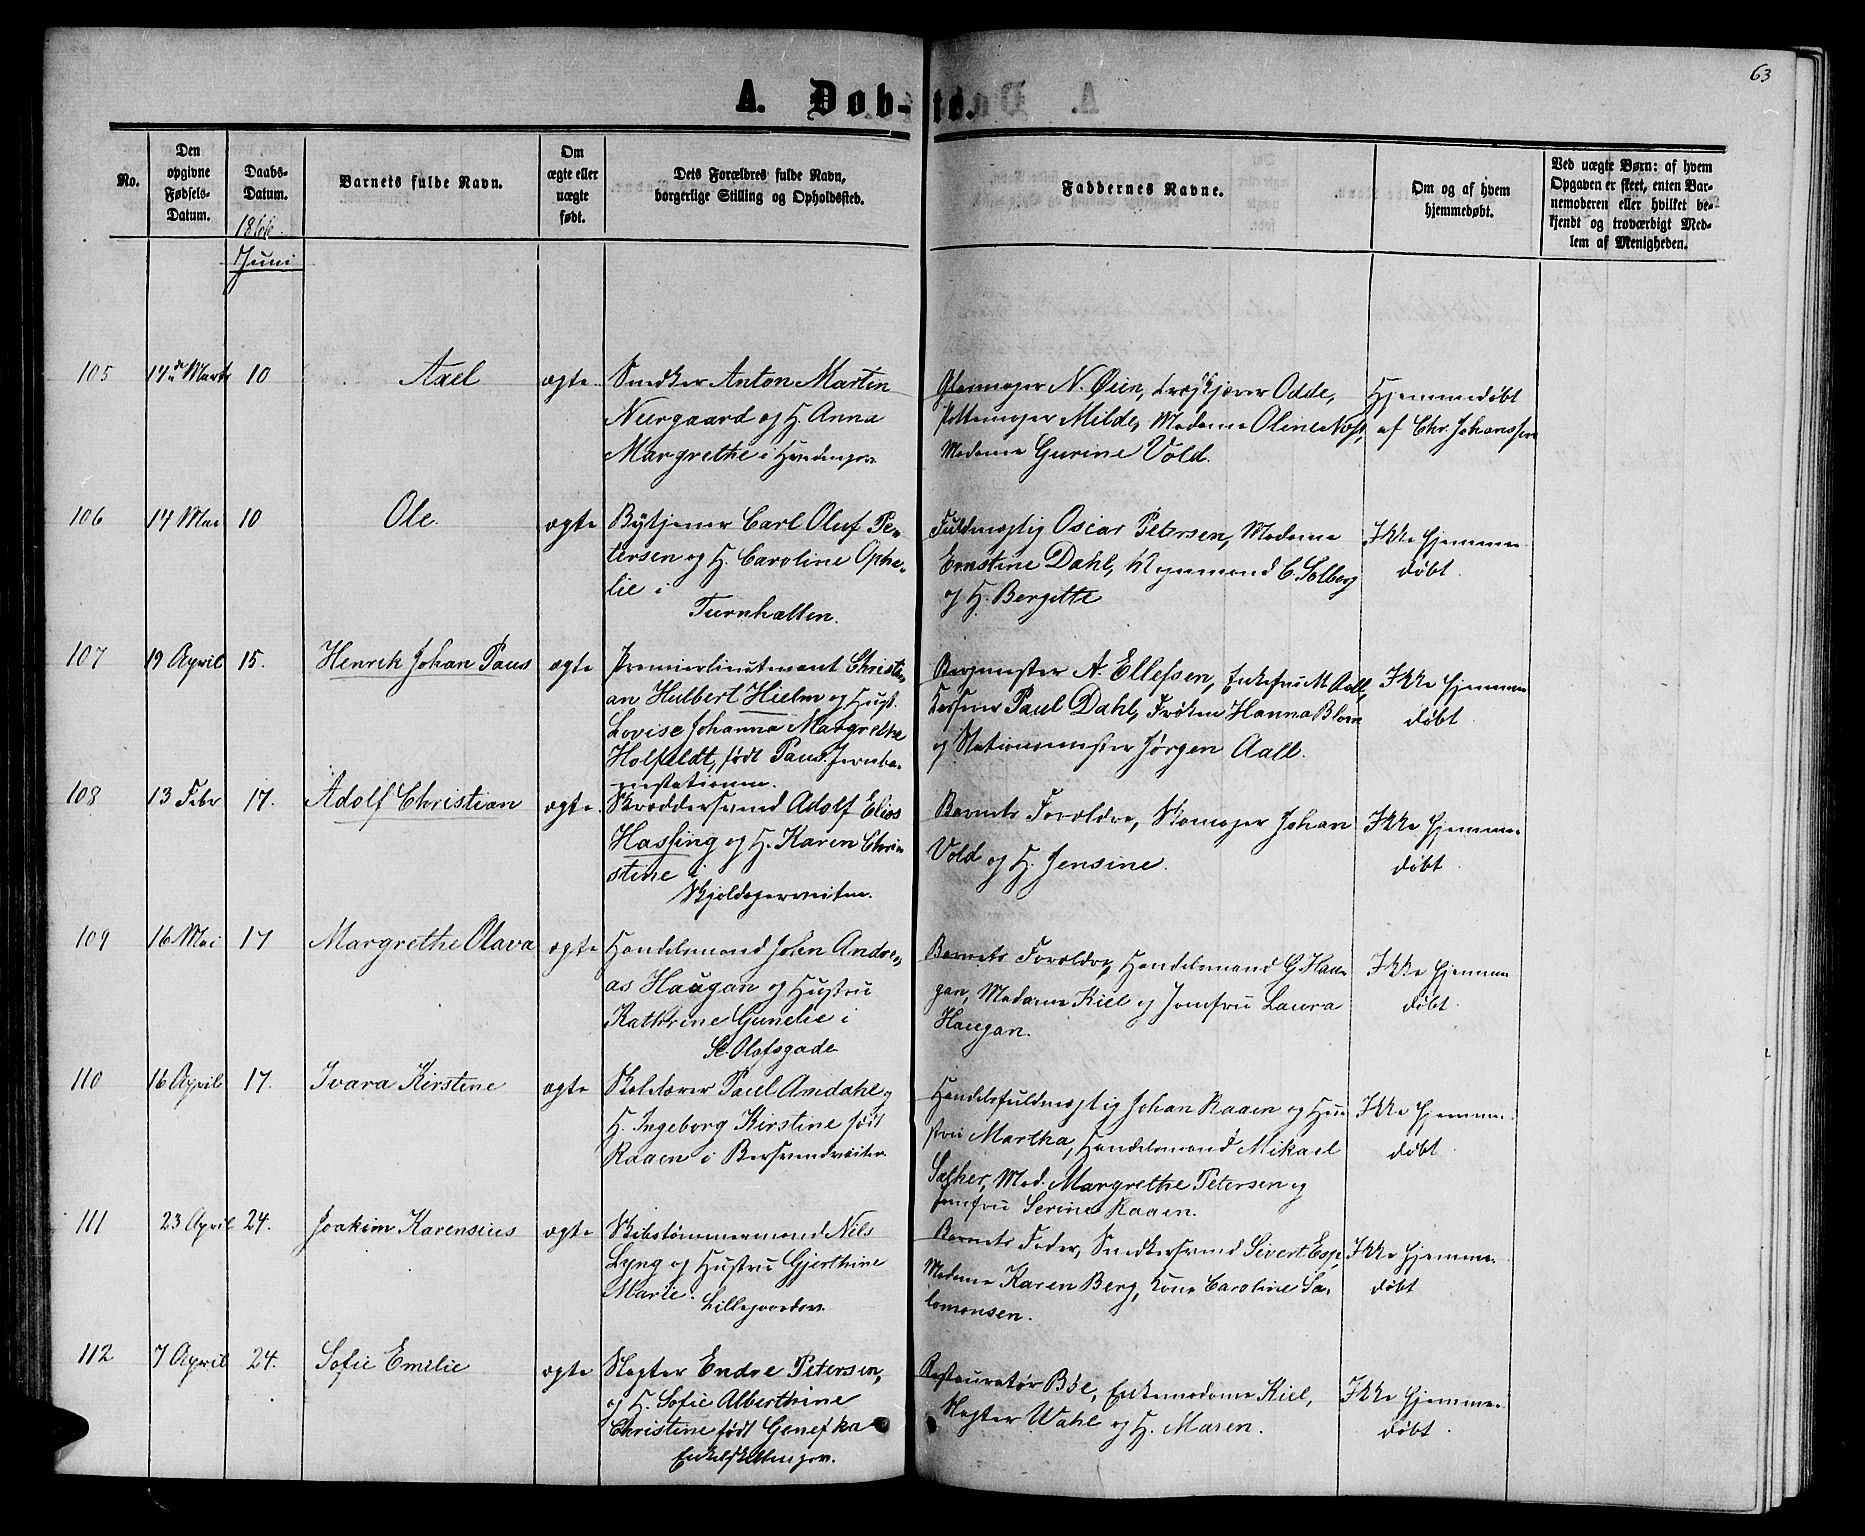 63
A. Døb- te.
No.
Den opgivne Fødsels-Datum.
Daabs-Datum.
Barnets fulde Navn.
Om ægte eller uægte født.
Dets Forældres fulde Navn, borgerlige Stilling og Opholdssted.
Faddernes Navne.
Om og af hvem hjemmedøbt.
Ved uægte Børn: af hvem Opgaven er skeet, enten Barnemoderen eller hvilket bekjendt og troværdigt Medlem af Menigheden.
1866.
Juni
105 14de Marts 10 Axel ægte.
Snedker Anton Martin
Neergaard og H. Anna
Margrethe i
N. Øien, Odde,
Pottemager Milde, Madame Oline
Madame Gurine Vold.
Hjemmedøbt
af Chr. Johanssen
106 14 Mai 10 Ole. ægte
Bytjener Carl Oluf Pe-
tersen og H. Caroline Ophe-
lie i
Turnhallen.
Fuldmægtig Oscar Petersen, Madame
Ernstine Dahl, C. Solberg
og H. Bergitte
Ikke hjemme-
døbt.
107 19 April 15. Henrik Johan Paus ægte
Premierlieutenant Christi-
an Hulbert Hielm og Hust.
Lovise Johanna Margrethe
Holfeldt, født Paus. Jernba-
nestationen.
Bergmester A. Ellefsen, Enkefru M. Aall,
Paul Dahl, Frøken Hanna Blom
og Stationsmester Jørgen Aall.
Ikke hjemme-
døbt.
108 13 Febr 17. Adolf Christian ægte.
Skræddersvend Adolf Elias
Hassing og H. Karen Chri-
stine i
Skjoldagerveiten.
Barnets Forældre, Skomager Johan
Vold og H. Jensine.
Ikke hjemme-
døbt.
109 16 Mai 17 Margrethe Olava ægte
Handelsmand John Andre-
as Haugan og Hustru
Kathrine Gunelie i
St. Olafsgade
Barnets Forældre, Handelsmand G. Hau-
gan, Madame Kiel og Jomfru Laura
Haugan.
Ikke hjemme-
døbt.
110 16 April 17. Ivara Kirstine ægte
Skolelærer Paul Amdahl og
H. Ingeborg Kirstine født
Raaen i
Handelsfuldmægtig Johan Raaen og Hu-
stru Martha, Handelsmand Mikael
Sæther, Mad. Margrethe Petersen og
Jomfru Serine Raaen.
Ikke hjemme-
døbt.
111 23 April 24. Joakim Karensius ægte
Skibstømmermand Nils
Lyng og Hustru Gjerthine
Marie.
Lillegaarden.
Barnets Fader, Snedkersvend Sivert Esp,
Madame Karen Berg, Kone Caroline Sa-
lomonsen.
Ikke hjemme-
døbt
112 7 April 24. Sofie Emilie ægte
Slagter Endre Petersen,
og H. Sofie Alberthine
Christine født
Restauratør Bøe, Enkemadame Kiel,
Slagter Wahl og H. Maren.
Ikke hjemme-
døbt.